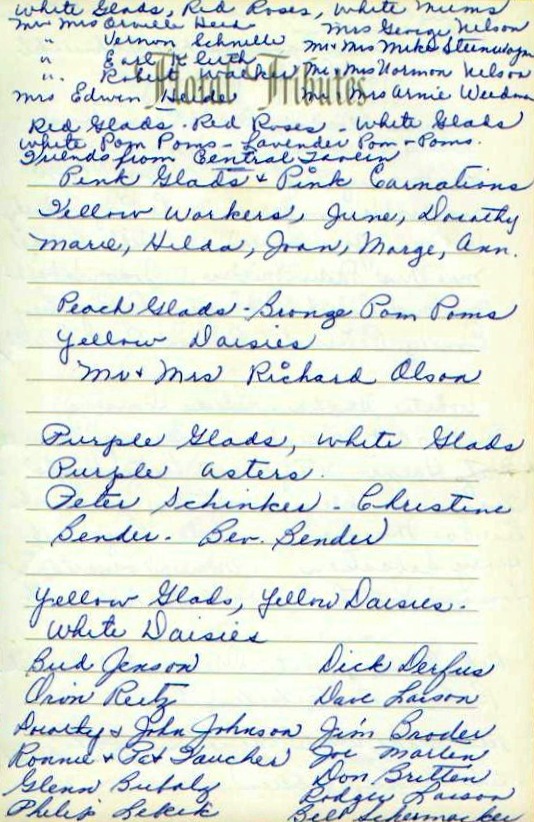 White Glads, Red Roses, White Mums
Mr Mrs Orville Heid Mrs George Nelson
" Vernon Schnelle Mr & Mrs Mike Steenwagn
" Earl
" Robert Walker Mr & Mrs Norman Nelson
Floral Tributes
Mrs Edwin Mr Mrs Arnie Weedman
Red Glads - Red Roses - White Glads
White Pom Poms - Lavender Pom - Poms.
Friends from Central Tavern
Pink Glads & Pink Carnations
Fellow Workers, June, Dorothy
Marie, Hilda, Joan, Marge, Ann.
Peach Glads - Bronze Pom Poms
Yellow Daisies
Mr & Mrs Richard Olson
Purple Glads, White Glads
Purple Asters.
Peter Schinker - Christine
Bender - Bev. Bender
Yellow Glads, Yellow Daisies.
White Daisies
Bud Jenson Dick Derfus
Orin Reitz Dave Larson
Dorothy & John Johnson Jim Broder
Ronnie & Pat Faucher Joe Martin
Glenn Don Britten
Philip Rodger Larson
Bill Schermacker